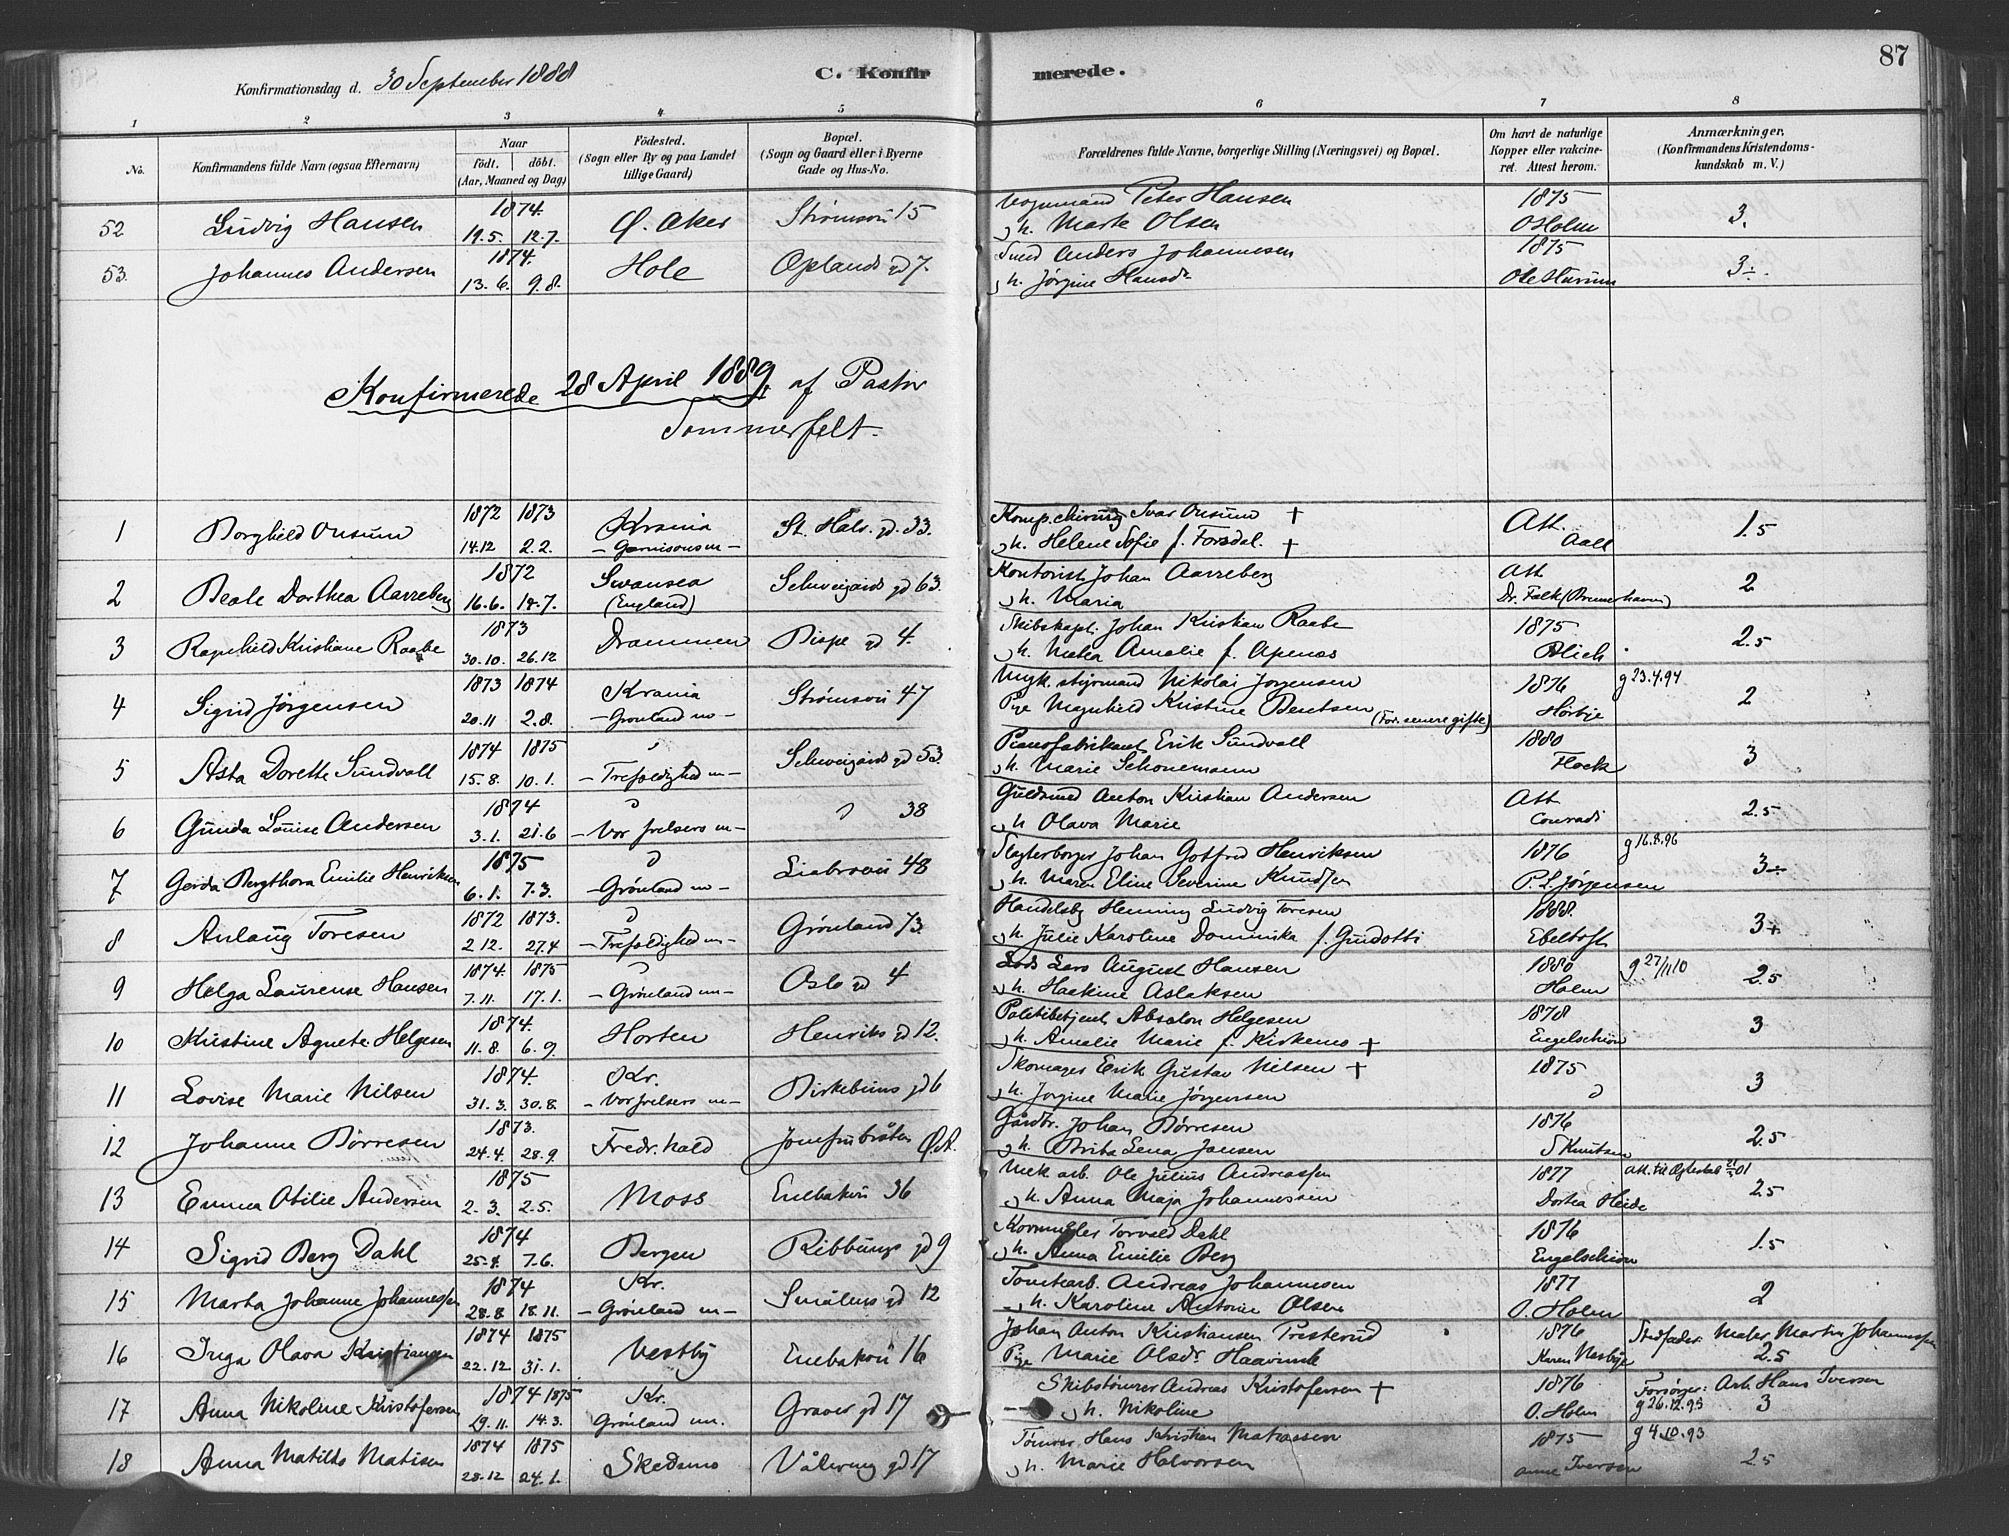 87
Konfirmationsdag d. 30 September 1888
C. Konfirmerede.
1 2 3 4 5 6 7 8
No. Konfirmandens fulde Navn (ogsaa Efternavn)
Naar født. døbt. (Aar, Maaned og Dag)
Fødested. (Sogn eller By og paa Landet tillige Gaard)
Bopæl. (Sogn og Gaard eller i Byerne Gade og Hus-No.
Forældrenes fulde Navne, borgerlige Stilling (Næringsvei) og Bopæl.
Om havt de naturlige Kopper eller vakcineret. Attest herom.
Anmærkninger. (Konfirmandens Kristendomskundskab m. V.)
52 Ludvig Hansen 1874. 19.5. 12.7. Ø. Aker Strømsvei 15 Peter Hansen 1875 3.
h. Marte Olsen O Holm
53. Johannes Andersen 1874. 13.6. 9.8. Hole Oplands gd 7. Anders Johannesen 1875 3÷.
h. Jørgine Hansdr
Konfirmerede 28 April 1889 af Pastor
Sommerfelt.
1 Borghild Onsum 1872 1873 Krania St. Halv. gd. 33. Komp.chirurg Ivar Onsum + Att. 1.5
14.12 2.2. - Garnisonsm - h. Helene Sofie f. Forsdal. + Aall
2 Beate Dorthea Aarreberg 1872 Swansea Schweigards gd 63. Kontorist Johan Aarreberg Att 2
16.6. 18.7. (England) h. Maria Dr. Falk (Bremerhaven)
3 Ragnhild Kristiane Raabe 1873 Drammen Bispe gd 4. Skibskapt. Johan Kristian Raabe 1875 2.5
30.10. 26.12 h. Matea Amalie f. Apenæs Blich.
4 Sigrid Jørgensen 1873 1874 Krania Strømsvei 47 Ungk. styrmand Nikolai Jørgensen 1876 g 23.4.94 2
20.11 2.8. - Grønland m - Pige Magnhild Kristine Bentsen (For. senere gifte) Hörbye
5 Asta Dorette Sundvall 1874 1875 Schweigards gd 53. Pianofabrikant Erik Sundvall 1880 3
15.8. 10.1. - Trefoldighed m - h. Marie Schonemann Flock
6 Gunda Louise Andersen 1874 " " 38 Guldsmed Anton Kristian Andersen Att 2.5
3.1. 21.6 - Vor frelsers m - h Olava Marie Conradi
7 Gerda Bergthora Emilie Henriksen 1875 " Liabroveien 48 Slagterborger Johan Gotfred Henriksen 1876 g 16.8.96 3÷
6.1. 7.3. - Grønland m - h. Maren Eline Severine Knudsen P. L. Jørgensen
8 Anlaug Toresen 1872 1873. " Grønland 73 Handelsb. Henning Ludvig Toresen 1888. 3+
2 12. 27.4 - Trefoldighed m - h. Julie Karoline Dominika f. Guidotti Ebeltoft
9 Helga Laurense Hansen 1874. 1875 " Oslo gd 4 Lods Lars August Hansen 1880 g 27/11 10 2.5
7.11. 17.1. - Grønland m - h. Haakine Aslaksen Holm
10 Kristine Agnete Helgesen 1874. Horten Henriks gd 12. Politibetjent Absalon Helgesen 1878 3
11.8. 6.9. h. Amalie Marie f. Kirkenes + Engelschiøn
11 Lovise Marie Nilsen 1874. Kr. Birkebeins gd 6 Skomager Erik Gustav Nilsen + 1875 3
31.3. 30.8. - Vor frelsers m - h. Jørgine Marie Jørgensen "
12 Johanne Börresen 1873. Fredr.hald Ø.A. Gårdbr. Johan Börresen 1876 2.5
24.4. 28.9. h. Brita Lena Jansen S Knutsen
13 Emma Otilie Andersen 1875 Moss Enebakvei 36 Mek arb. Ole Julius Andreassen 1877 att. til Ægteskab 01 2.5
2. 3. 2.5. h. Anna Maja Johannessen Dortea Heide
14 Sigrid Berg Dahl 1874 Bergen Ribbungs gd 9 Kornmgler Torvald Dahl 1876 1.5
25.4. 7.6. h. Anna Emilie Berg Engelschiøn
15 Marta Johanne Johannessen 1874 Kr. Smålens gd 12 Tomtearb. Andreas Johannesen 1877 2
28.8 18.11. - Grønland m - h. Karoline Antonie Olsen O. Holm
16 Inga Olava Kristiansen 1874 1875 Vestby Enebakvei 16 Johan Anton Kristiansen Presterud 1876 Stedfader: Maler Martin Johannessen
22.12. 31.1. Pige Marie Olsdr Haavimb Karen Nesbye 2.5
17 Anna Nikoline Kristofersen 1874 1875 Kr. Graver gd 17 Skibstømrer Andreas Kristofersen + 1876 Forsørger: Arb. Hans Iversen
29.11. 14.3. Grønland m. h. Nikoline O. Holm g 26.12.93 3
18 Anna Matilde Matisen 1874 1875 Skedsmo Vålereng gd 17 Tømrer Hans Kristian Matiassen 1875 g 4.10.93
28.12 24.1. h. Marie Halvorsen Anne Iversen 2.5